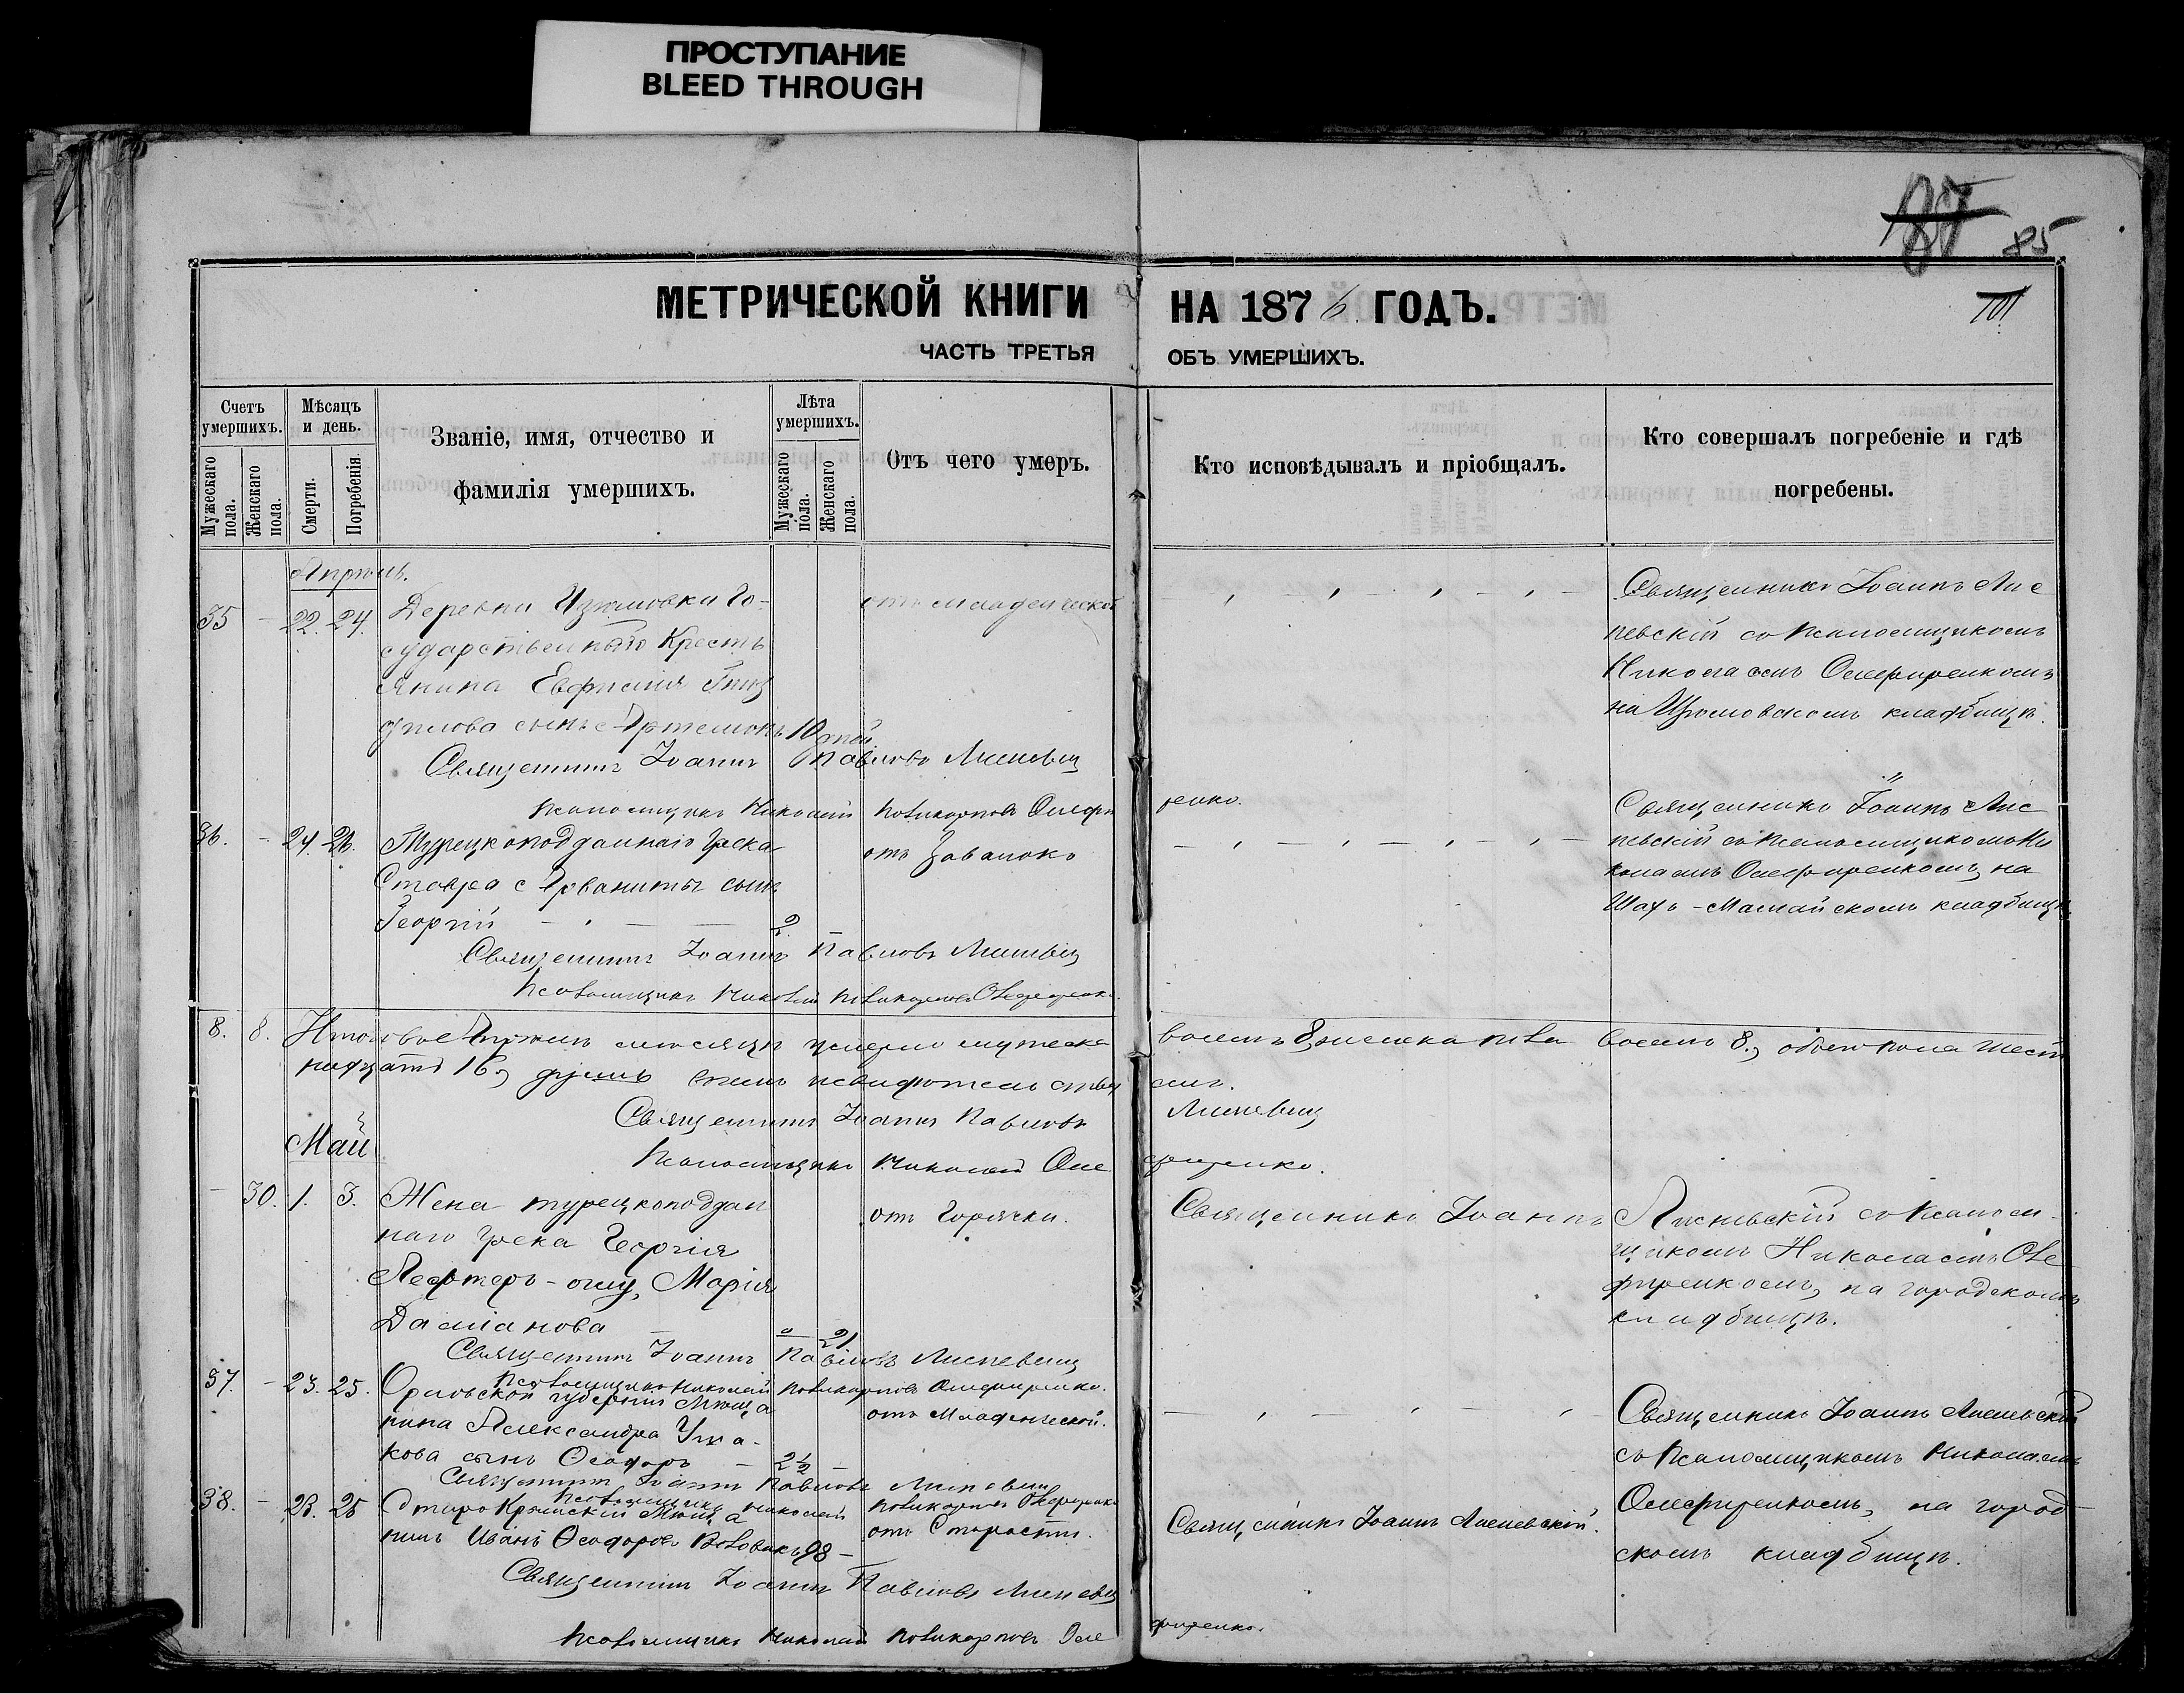 ПРОСТУПАНИЕ
BLEED THROUGH
87 85
МЕТРИЧЕСКОЙ КНИГИ НА 1876 ГОДЪ.
101
ЧАСТЬ ТРЕТЬЯ ОБЪ УМЕРШИХЪ.
Счетъ умершихъ.
Мужескаго пола.
Женскаго пола.
Мѣсяцъ и день.
Смерти.
Погребенія.
Званіе, имя, отчество и
фамилія умершихъ.
Лѣта умершихъ.
Мужескаго пола.
Женскаго пола.
Отъ чего умеръ.
Кто исповѣдывалъ и пріобщалъ.
Кто совершалъ погребеніе и гдѣ
погребены.
Апрѣль.
35 - 22. 24. Деревни Изюмовки Го-
сударственнаго Кресть
янина Евфимія
сынъ Артемонъ 10 дней
отъ младенческой
Священникъ Іоаннъ
певскій со Псаломщикомъ
Николаемъ Олефиренкомъ
на Изюмовскомъ кладбищѣ.
Священникъ Іоаннъ Павловъ
Псаломщикъ Николай Поликарповъ Олефиренко.
36. - 24. 26. Турецкоподданнаго Грека
Ставра Арваниты сынъ
Георгій - 2.
отъ
Священникъ Іоаннъ
певскій со Псаломщикомъ Ни
колаемъ Олефиренкомъ, на
Шахъ-Мамайскомъ кладбищѣ.
Священникъ Іоаннъ Павловъ
Псаломщикъ Николай Поликарповъ Олефиренко.
8. 8. Итого въ Апрѣлѣ мѣсяцѣ умерло мужеска восемь 8, женска пола восемь 8., обоего пола шест
надцать 16,
Священникъ Іоаннъ Павловъ
Май
Псаломщикъ Николай Олефиренко.
- 30. 1. 3. Жена турецкоподдан
наго Грека Георгія
Лефтеръ-оглу, Марія
Даміанова - 21
отъ Горячки.
Священникъ Іоаннъ
со Псалом-
щикомъ Николаемъ Оле
фиренкомъ, на городскомъ
кладбищѣ.
Священникъ Іоаннъ Павловъ
Псаломщикъ Николай Поликарповъ Олефиренко.
37. - 23. 25. Орловской губерніи Мѣща
нина Александра Уша-
кова сынъ Ѳеодоръ - 2½ -
отъ Младенческой.
Священникъ Іоаннъ
со Псаломщикомъ Николаемъ
Священникъ Іоаннъ Павловъ
Псаломщикъ Николай Поликарповъ Олефиренко
38. - 23. 25 Старо Крымскій Мѣща
нинъ Иванъ Ѳеодоровъ 98 -
отъ Старости.
Священникъ Іоаннъ
Олефиренкомъ, на город
скомъ кладбищѣ.
Священникъ Іоаннъ Павловъ
Псаломщикъ Николай Поликарповъ Олефиренко.